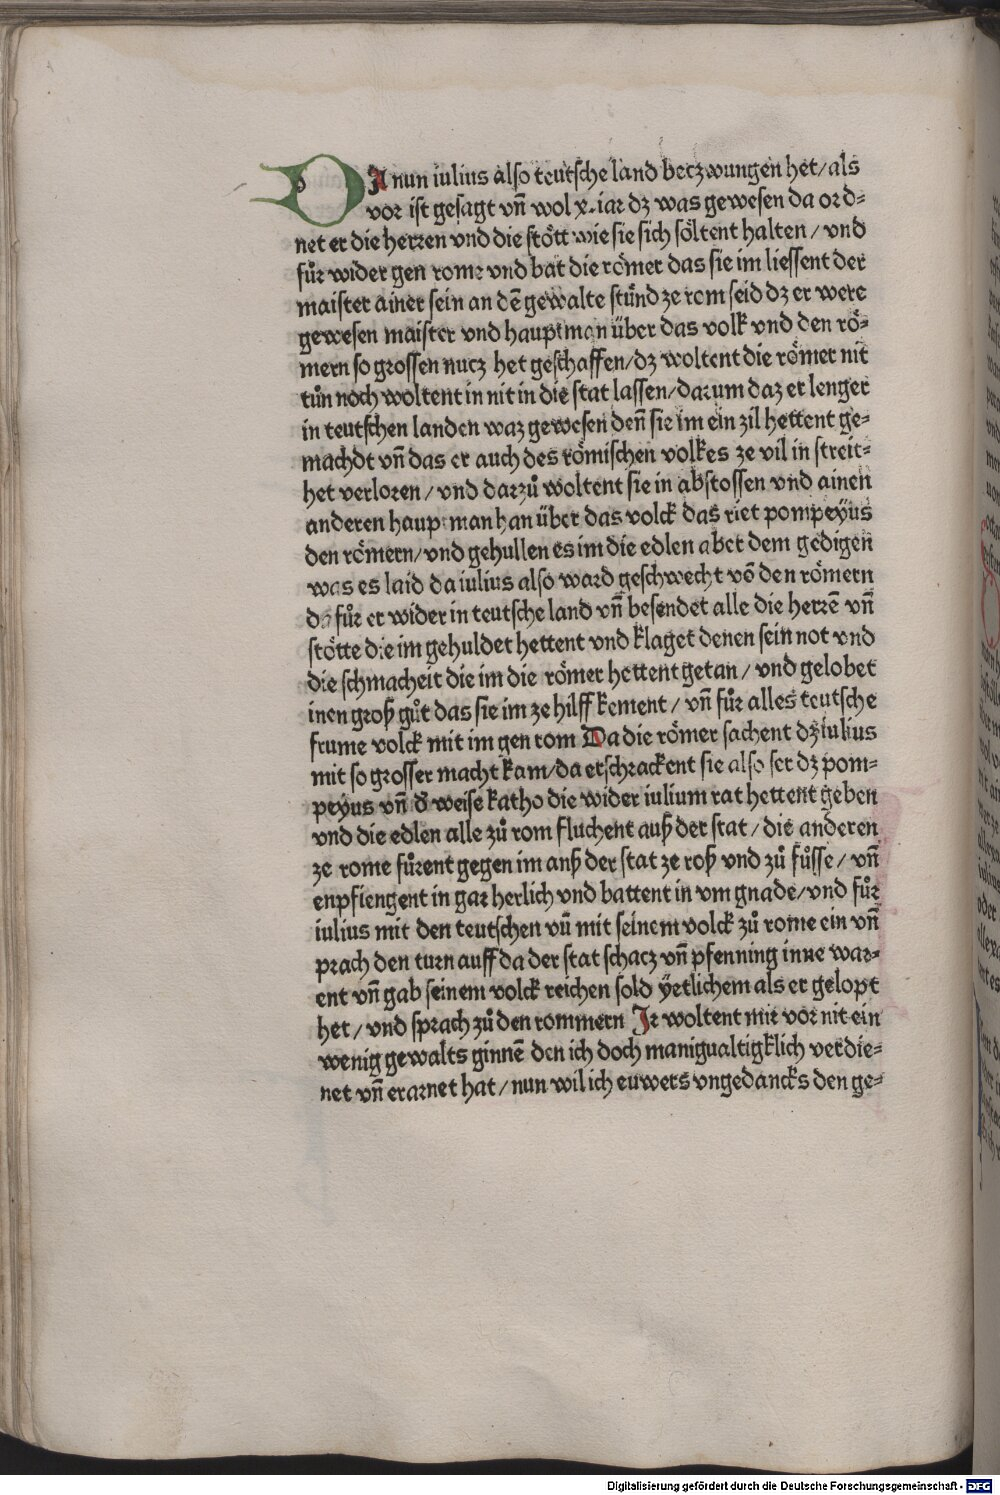 DA nun iulius also teutsche land beczwungen het/als
vor ist gesagt vn̄ wol x. iar dz was gewesen da ord⸗
net er die herren vnd die stoͤtt wie sie sich soͤltent halten / vnd
fuͦr wider gen rome vnd bat die roͤmer das sie im liessent der
maister ainer sein an dē gewalte stuͤnd ze rom seid dz er were
gewesen maister vnd hauptman über das volk vnd den roͤ⸗
mern so grossen nucz het geschaffen/dz woltent die roͤmer nit
tuͦn noch woltent in nit in die stat lassen/darum daz er lenger
in teutschen landen waz gewesen den̄ sie im ein zil hettent ge⸗
machdt vn̄ das er auch des roͤmischen volkes ze vil in streit⸗
het verloren / vnd darzuͦ woltent sie in abstossen vnd ainen
anderen hauptman han über das volck das riet pompeÿus
den roͤmern/vnd gehullen es im die edlen aber dem gedigen
was es laid da iulius also ward geschwecht vō den roͤmern
da fuͦr er wider in teutsche land vn̄ besendet alle die herrē vn̄
stoͤtte die im gehuldet hettent vnd klaget denen sein not vnd
die schmacheit die im die roͤmer hettent getan / vnd gelobet
inen groß guͦt das sie im ze hilff kement / vn̄ fuͦr alles teutsche
frume volck mit im gen rom Da die roͤmer sachent dz iulius
mit so grosser macht kam/da erschrackent sie also ser dz pom⸗
peÿus vn̄ d̕ weise katho die wider iulium rat hettent geben
vnd die edlen alle zuͦ rom fluchent auß der stat / die anderen
ze rome fuͦrent gegen im anß der stat ze roß vnd zuͦ fuͦsse / vn̄
enpfiengent in gar herlich vnd battent in vm gnade/vnd fuͦr
iulius mit den teutschen vn̄ mit seinem volck zuͦ rome ein vn̄
prach den turn auff da der stat schacz vn̄ pfenning inne war⸗
ent vn̄ gab seinem volck reichen sold ÿetlichem als er gelopt
het / vnd sprach zuͦ den rommern Ir woltent mir vor nit ein
wenig gewalts ginnē den ich doch manigualtigklich verdie⸗
net vn̄ erarnet hat / nun wil ich euwers vngedancks den ge⸗
Digitalisierung gefördert durch die Deutsche Forschungsgemeinschaft - DFG